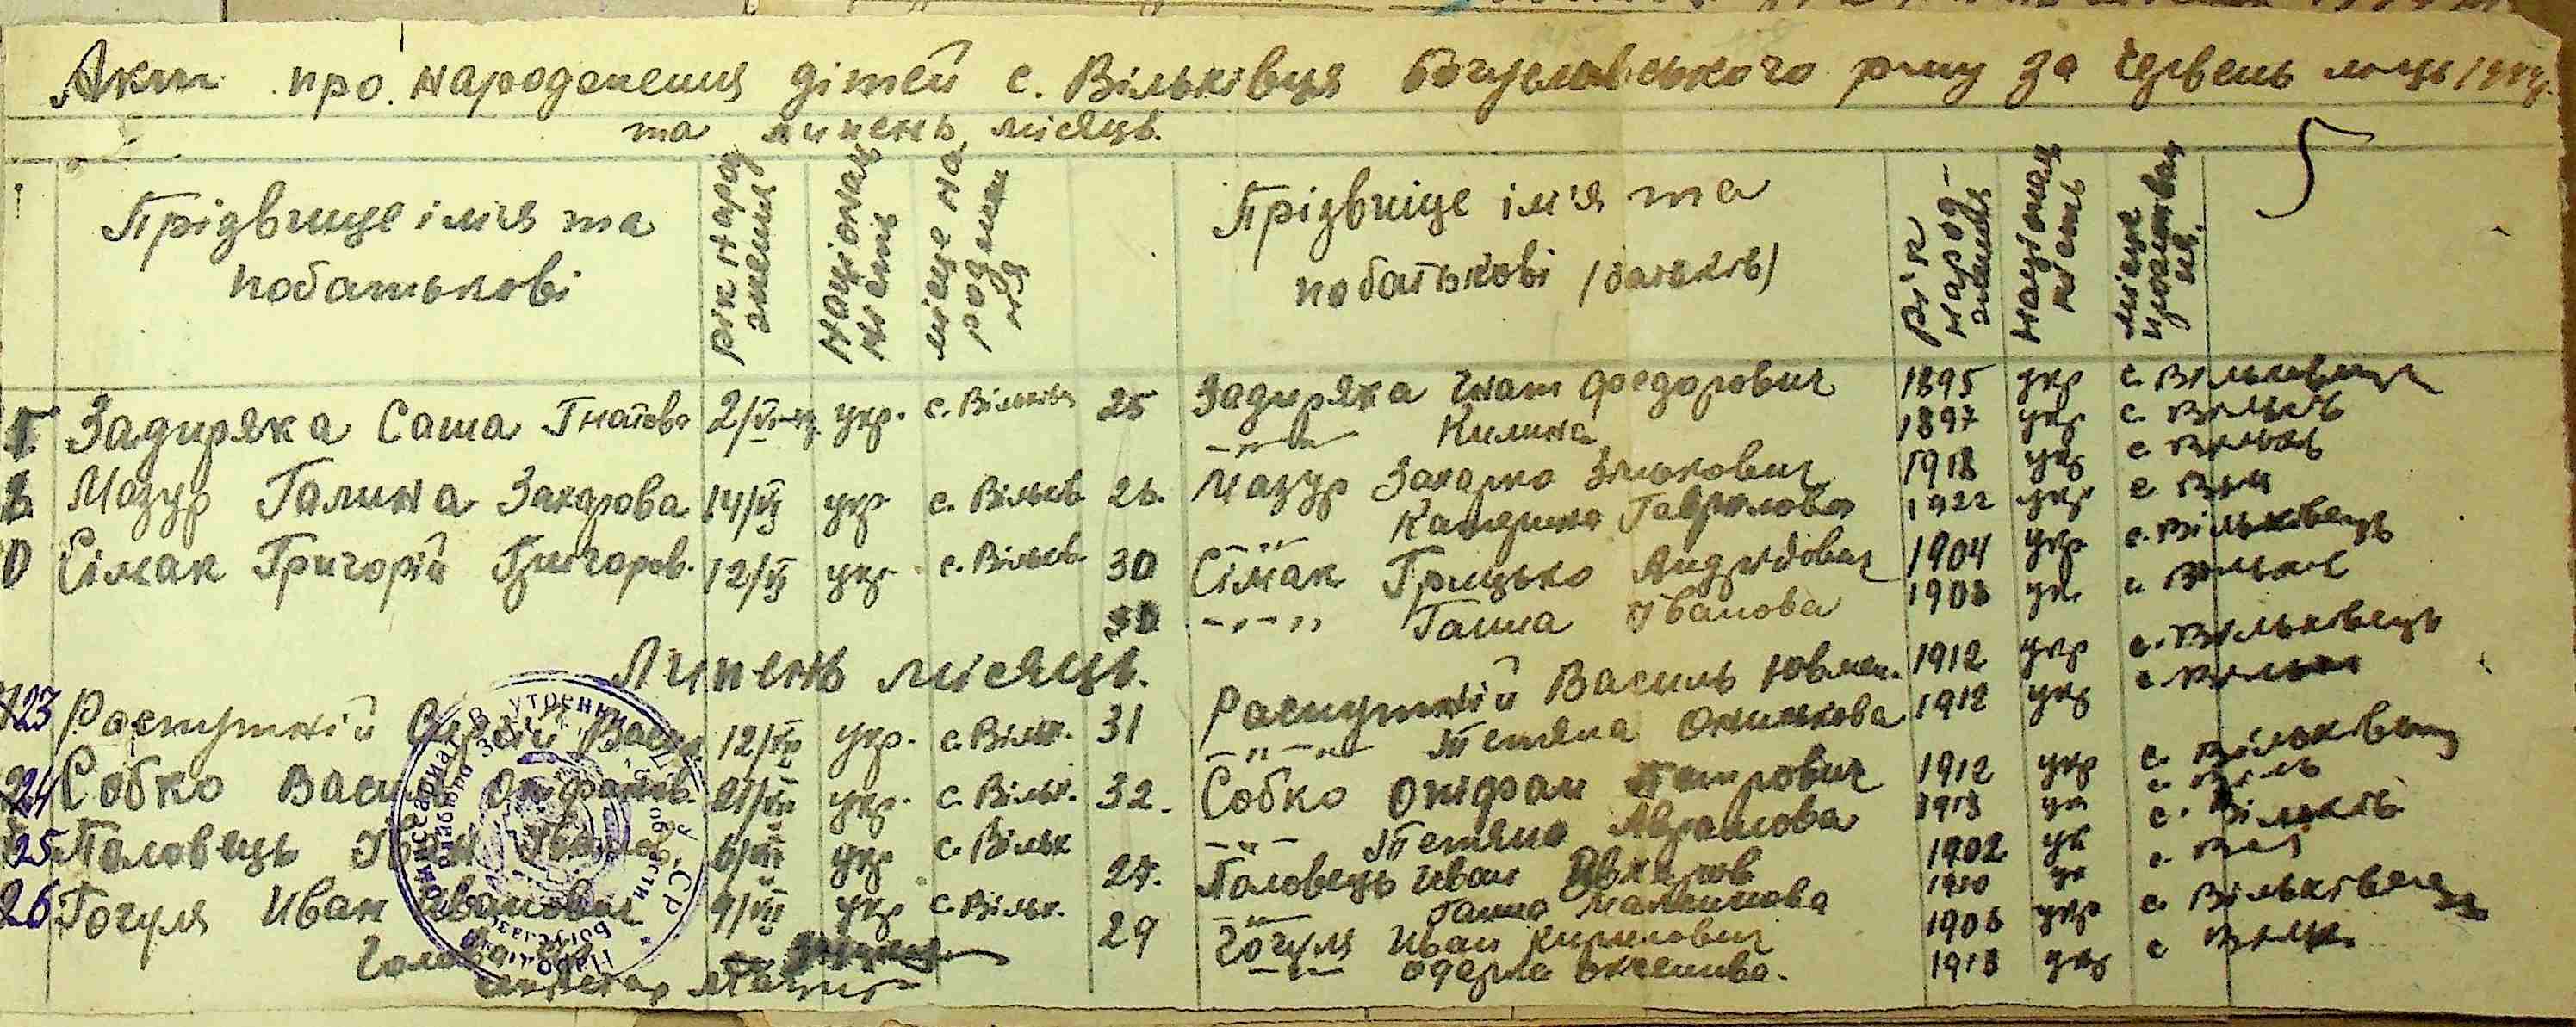 Акт про народження дітей с. Вільківця Богуславського р-ну за червень м-ць
та липень місяць.
5
Прізвище імя та побатькові
рік народження
Національність
місце народження
Прізвище ім'я та побатькові /батьків/
рік народження
національність
місце
Задиряка Саша Гнатова 2/VI укр. с. Вільківц 25 Задиряка Гнат Федорович 1895 укр с. Вільківець
—"— Килина 1897 укр с. Вільків
Мазур Галина Захарова 14/VI укр с. Вільків. 26. Мазур Захарко Зінькович 1918 укр с. Вільків
—"— Катерина Гаврилова 1922 укр с. Віл
Сімак Григорій Григоров. 12/VI укр с. Вільків. 30 Сімак Грицько Андрійович 1904 укр с. Вільківець
—"— Ганна Іванова 1908 ук. с. Вільків
Липень місяць.
23 Распутній Сергій Васил 12/VII укр. с. Вільк. 31 Распутній Василь 1912 укр с. Вільківець
—"— Тетяна Оникова 1912 укр с. Вільк
24 Собко Василь Оніфанів. 21/VII укр. с. Вільк. 32. Собко Оніфан Петрович 1912 укр с. Вільківець
—"— Тетяна Аврамова 1913 ук с. Віль
25 Половець Іван Іванов 6/VII укр с. Вільк 27. Половець Иван 1902 ук с. Вільків
—"— Ганна Максимова 1910 ук с. Віл
26 Гогуля Иван Иванович 9/VII укр с. Вільк. 29 Гогуля Иван Кирилович 1906 укр с. Вільківець
—"— Одарка 1913 укр с Вільк.
Голова
секретар